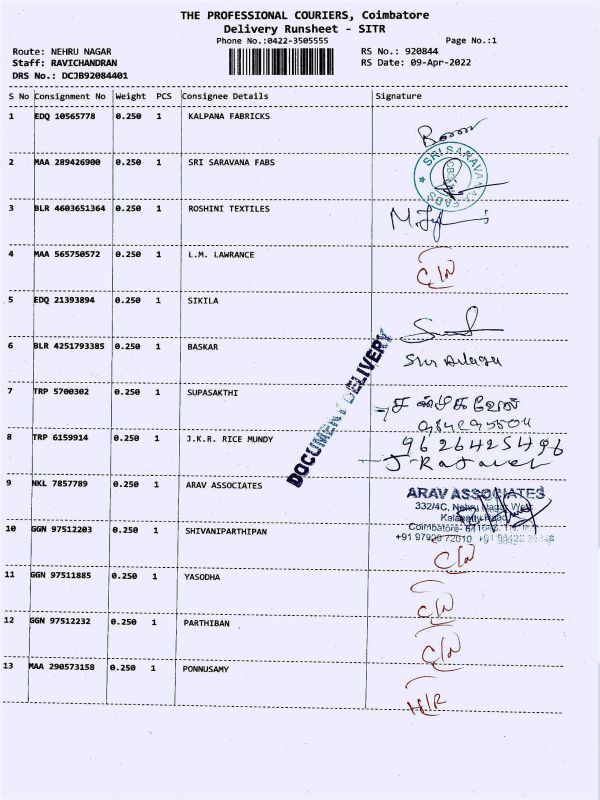 THE PROFESSIONAL COURIERS, Coimbatore
Delivery Runsheet - SITR
Phone No.:0422-3505555
Page No.:1
Route: NEHRU NAGAR
RS No.: 920844
Staff: RAVICHANDRAN
RS Date: 09-Apr-2022
DRS No.: DCJB92084401
S No Consignment No Weight PCS Consignee Details Signature
1 EDQ 10565778 0.250 1 KALPANA FABRICKS
2 MAA 289426900 0.250 1 SRI SARAVANA FABS
SRI SARAVANA FABS
3 BLR 4603651364 0.250 1 ROSHINI TEXTILES
4 MAA 565750572 0.250 1 L.M. LAWRANCE
C/N
5 EDQ 21393894 0.250 1 SIKILA
6 BLR 4251793385 0.250 1 BASKAR
DOCUMENT DELIVERY
7 TRP 5700302 0.250 1 SUPASAKTHI
8 TRP 6159914 0.250 1 J.K.R. RICE MUNDY
9626425496
9 NKL 7857789 0.250 1 ARAV ASSOCIATES
ARAV ASSOCIATES
332/4C, Nehru Nagar West
Coimbatore-
10 GGN 97512203 0.250 1 SHIVANIPARTHIPAN
C/N
11 GGN 97511885 0.250 1 YASODHA
C/N
12 GGN 97512232 0.250 1 PARTHIBAN
C/N
13 MAA 290573158 0.250 1 PONNUSAMY